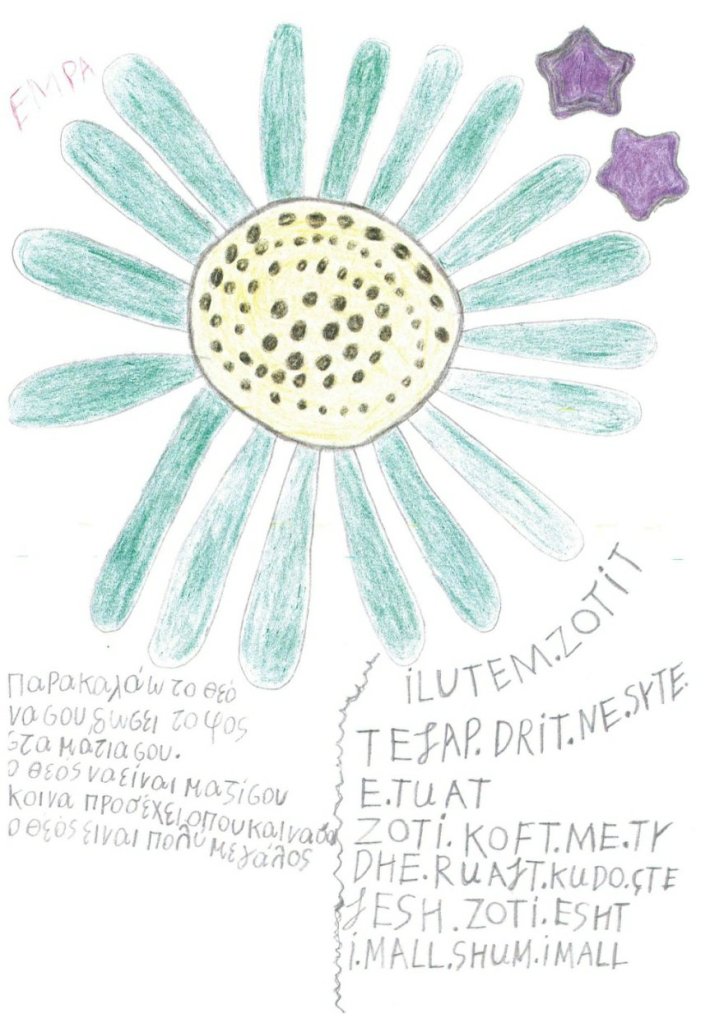 ΕΜΡΑ
Παρακαλάω το θεό
να σου δώσει το φος
στα ματια σου.
ο θεός να είναι μαζί σου
κοινα προσέχει οπου και να σαι
ο θεός ειναι πολύ μεγάλος
iLUTEM.ZOTiT
TEJAP.DRiT.NE.SYTE.
E.TUAT
ZOTi.KOFT.ME.TY
DHE.RUAJT.KUDO.ÇTE
JESH.ZOTi.ESHT
i.MALL.SHUM.iMALL